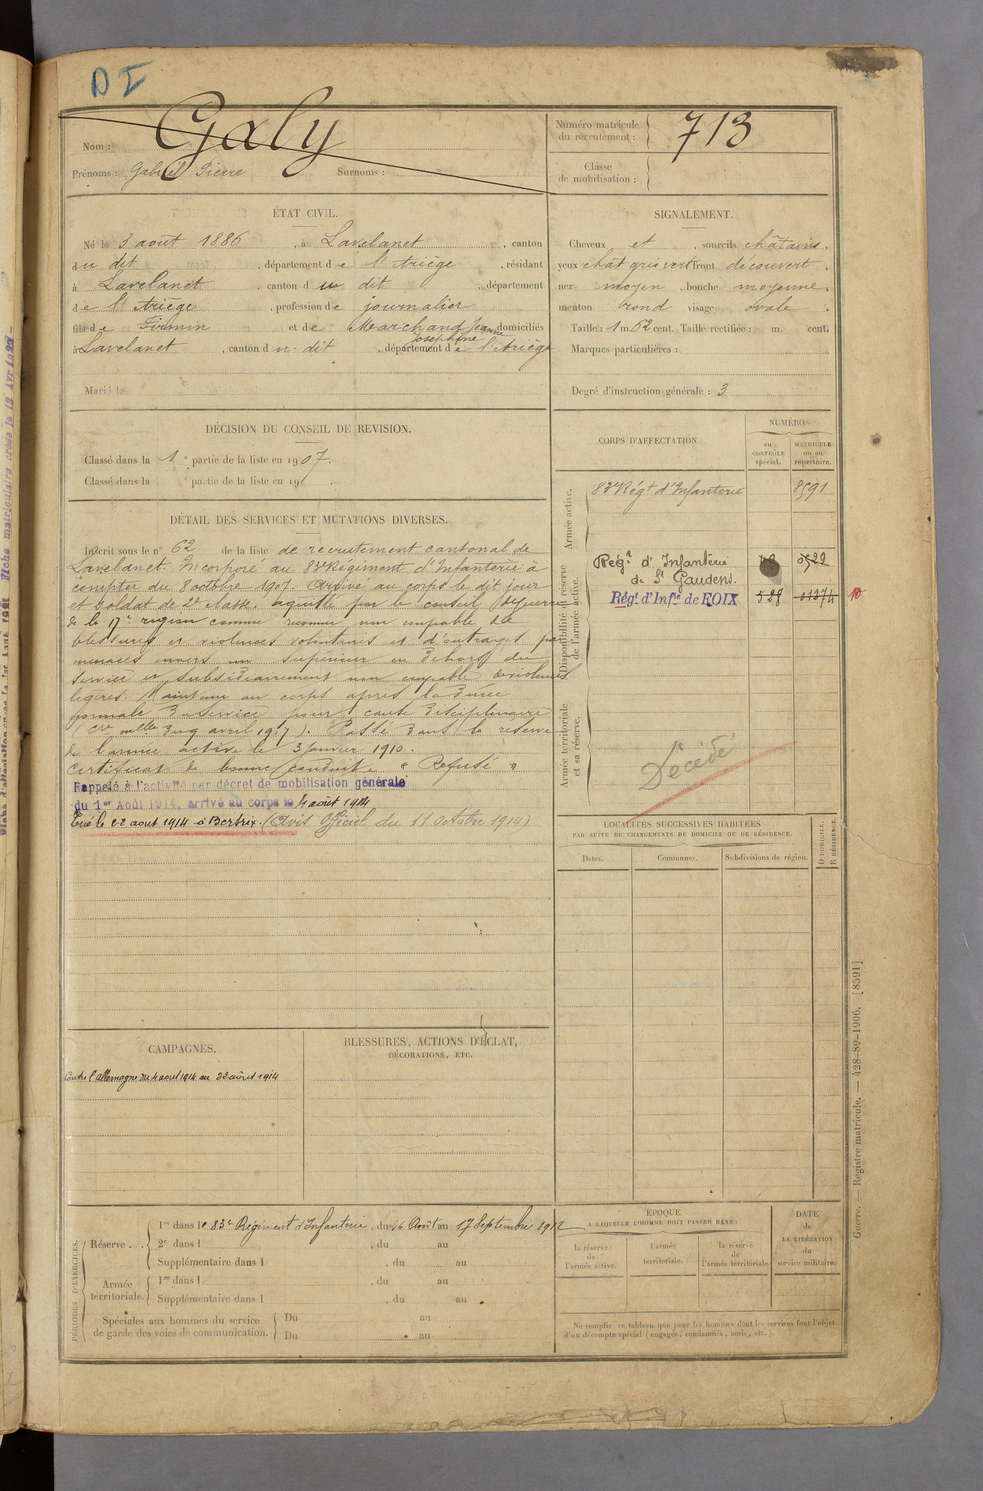 D I
Nom : Galy
Prénoms : Gabriel Pierre Surnoms :
Numéro matricule du recrutement : 713
Classe de mobilisation :
ÉTAT CIVIL.
Né le 3 août 1886, à Lavelanet, canton
du dit, département de l'Ariège, résidant
à Lavelanet, canton du dit, département
de l'Ariège, profession de journalier
fils de Firmin et de Marchand Jeanne Joséphine domiciliés
à Lavelanet, canton du dit, département de l'Ariège
Marié
SIGNALEMENT.
Cheveux et, sourcils châtains.
yeux chat gris vert front découvert,
nez moyen, bouche moyenne,
menton rond visage ovale.
Taille : 1 m. 62 cent. Taille rectifiée : m. cent.
Marques particulières :
Degré d'instruction générale : 3
DÉCISION DU CONSEIL DE REVISION.
Classé dans la 1e partie de la liste en 1907.
Classé dans la partie de la liste en 19
DÉTAIL DES SERVICES ET MUTATIONS DIVERSES.
Inscrit sous le n° 62 de la liste de recrutement cantonal de
Lavelanet. Incorporé au 83e Régiment d'Infanterie à
compter du 8 octobre 1907. Arrivé au corps le dit jour
et Soldat de 2e classe. Acquitté par le conseil de guerre
de la 17e région comme reconnu non coupable de
blessures et violences volontaires et d'outrages par
menaces envers un supérieur en dehors du
service et subsidiairement non coupable de violences
légères. Maintenu au corps après la durée
normale du service pour cause disciplinaire
Passé dans la réserve
de l'armée active le 3 janvier 1910.
Certificat de bonne conduite « Refusé »
Rappelé à l'activité par décret de mobilisation générale
du 1er Août 1914, arrivé au corps le 4 août 1914
Tué le 22 aout 1914 à Bertrix. (Avis Officiel du 11 Octobre 1914)
CORPS D'AFFECTATION.
NUMÉROS
au CONTRÔLE spécial.
MATRICULE ou au répertoire.
Armée active.
83e Régt d'Infanterie 8591
Disponibilité et réserve de l'armée active.
Régt d'Infanterie de St Gaudens.
Régt d'Infie de FOIX
Armée territoriale et sa réserve.
Décédé
LOCALITÉS SUCCESSIVES HABITÉES
PAR SUITE DE CHANGEMENTS DE DOMICILE OU DE RÉSIDENCE.
Dates. Communes. Subdivisions de région. D DOMICILE. R RÉSIDENCE.
CAMPAGNES.
Contre l'Allemagne du 4 aout 1914 au 22 août 1914
BLESSURES, ACTIONS D'ÉCLAT,
DÉCORATIONS, ETC.
PÉRIODES D'EXERCICES.
Réserve...
1re dans le 83e Régiment d'Infanterie, du Août au 17 Septembre 1912
2e dans l , du au
Supplémentaire dans l , du au
Armée territoriale.
1re dans l , du au
Supplémentaire dans l , du au
Spéciales aux hommes du service de garde des voies de communication.
Du au
Du au
ÉPOQUE
À LAQUELLE L'HOMME DOIT PASSER DANS :
la réserve de l'armée active.
l'armée territoriale.
la réserve de l'armée territoriale.
DATE de LA LIBÉRATION du service militaire.
Ne remplir ce tableau que pour les hommes dont les services font l'objet
d'un décompte spécial (engagés, condamnés, omis, etc.).
Guerre. — Registre matricule. — 428-89-1906. [8591]